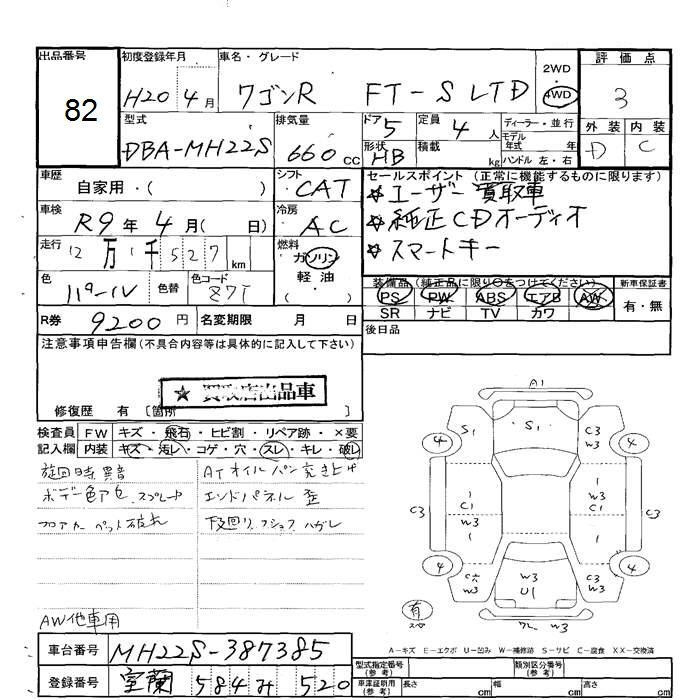 出品番号 初度登録年月 車名・グレード 2WD 評価点
82 H20 4月 ワゴンR FT-S LTD 4WD 3
型式 排気量 ドア 5 定員 4人 ディーラー・並行 外装 内装
DBA-MH22S 660cc 形状 HB 積載 kg モデル年式 年 D C
ハンドル 左・右
車歴 自家用・( ) シフト CAT セールスポイント (正常に機能するものに限ります)
☆ユーザー買取車
車検 R9年 4月( 日) 冷房 AC ☆純正CDオーディオ
走行 12万1千527km 燃料 ガソリン ☆スマートキー
軽油
( )
色 パール 色替 色コード Z7T 装備品 (純正品に限り○をつけてください) 新車保証書
PS PW ABS エアB AW 有・無
SR ナビ TV カワ
R券 9200円 名変期限 月 日 後日品
注意事項申告欄(不具合内容等は具体的に記入して下さい)
★ 買取店出品車
修復歴 有 [箇所 ]
検査員 FW キズ・飛石・ヒビ割・リペア跡・×要
記入欄 内装 キズ・汚レ・コゲ・穴・スレ・キレ・破レ
旋回時異音 ATオイルパン突き上げ
ボデー色アセ、スプレー エンドパネル歪
フロアカーペット破れ 下回り
AW他車用
A1
S1 S1 C3 W3
4 4
C3 1 C1 W3 1 1 W3 C1 1 C3
4 4
W3 U1 C3 W3
有 W3
A-キズ E-エクボ U-凹み W-補修跡 S-サビ C-腐食 XX-交換済
車台番号 MH22S-387385 型式指定番号(参考) 類別区分番号(参考)
登録番号 室蘭 584 み 520 車津証明用(参考) 長さ cm 幅 cm 高さ cm